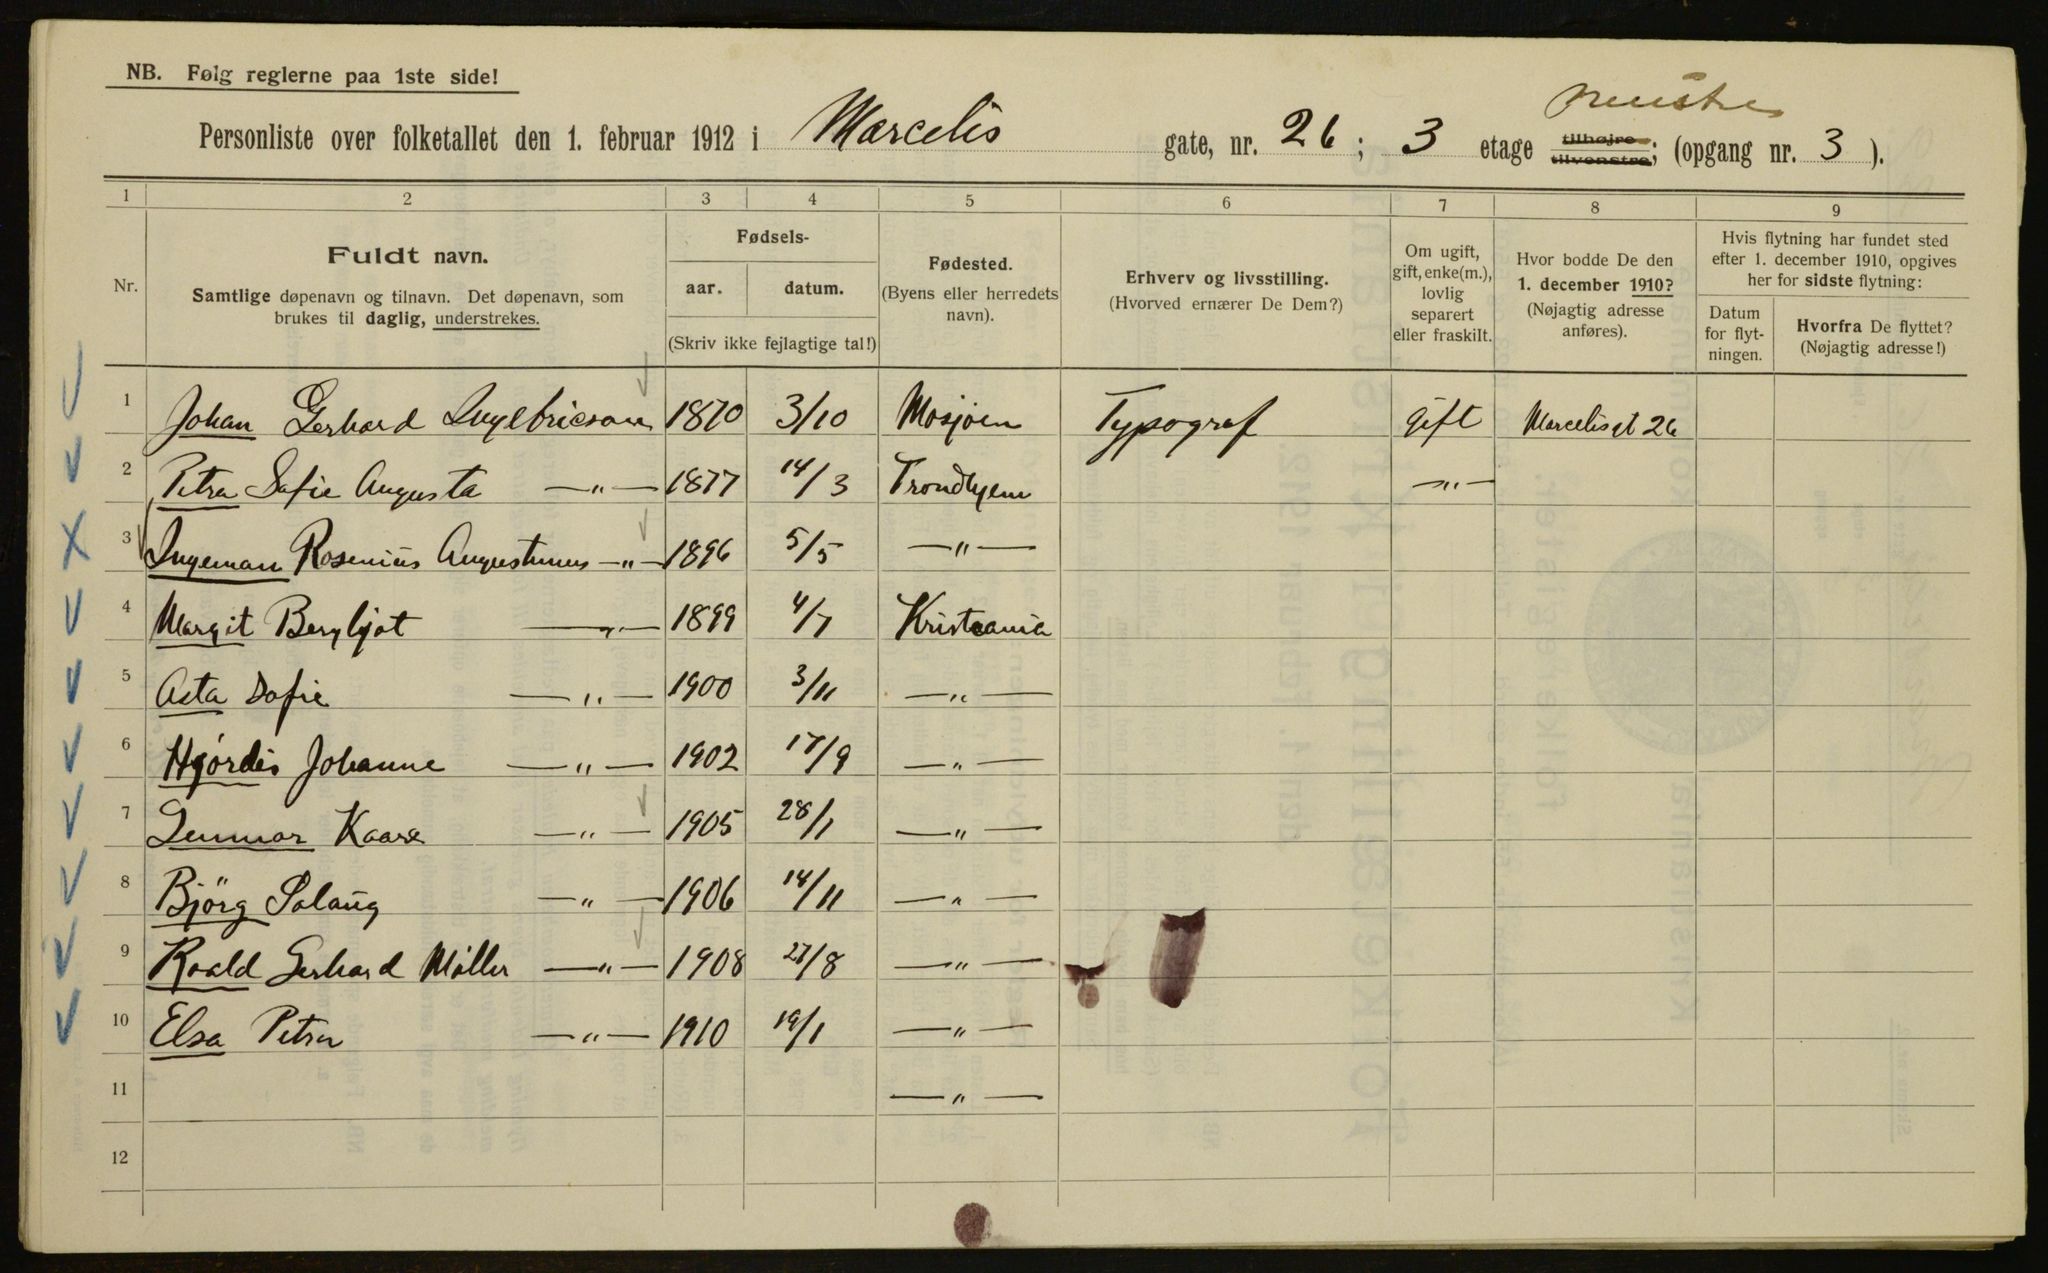 NB. Følg reglerne paa 1ste side!
Personliste over folketallet den 1. februar 1912 i Marcelis gate, nr. 26; 3 etage tilhøjre tilvenstre; (opgang nr. 3).
1 2 3 4 5 6 7 8 9
Nr.
Fuldt navn.
Samtlige døpenavn og tilnavn. Det døpenavn, som
brukes til daglig, understrekes.
Fødsels-
aar. datum.
(Skriv ikke fejlagtige tal!)
Fødested.
(Byens eller herredets
navn).
Erhverv og livsstilling.
(Hvorved ernærer De Dem?)
Om ugift,
gift, enke(m.),
lovlig
separert
eller fraskilt.
Hvor bodde De den
1. december 1910?
(Nøjagtig adresse
anføres).
Hvis flytning har fundet sted
efter 1. december 1910, opgives
her for sidste flytning:
Datum
for flyt-
ningen.
Hvorfra De flyttet?
(Nøjagtig adresse!)
1 Johan Gerhard Ingebricson 1870 3/10 Mosjøen Typograf gift Marcelisgt 26
2 Petra Sofie Augusta —"— 1877 14/3 Trondhjem —"—
3 Ingeman Rosenius Augustinus —"— 1896 5/5 —"—
4 Margit Bergljot —"— 1899 4/7 Kristiania
5 Asta Sofie —"— 1900 3/11 —"—
6 Hjördis Johanne —"— 1902 17/9 —"—
7 Gunnar Kaare —"— 1905 28/1 —"—
8 Björg Solaug —"— 1906 14/11 —"—
9 Roald Gerhard Møller —"— 1908 27/8 —"—
10 Elsa Petra —"— 1910 19/1 —"—
11 —"—
12